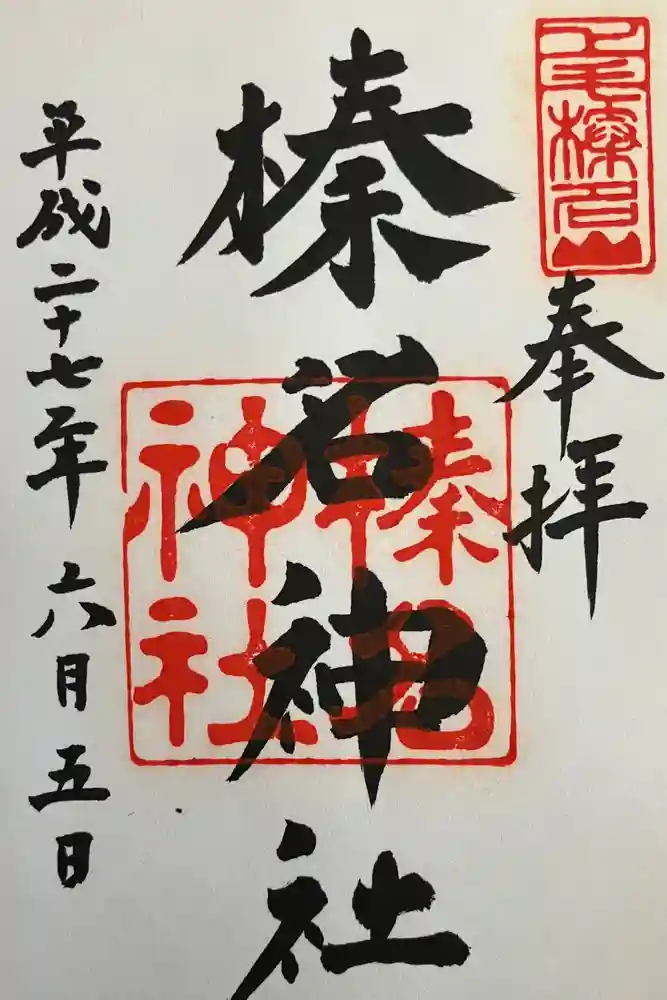 上毛榛名
奉拝
榛名神社
榛名神社
平成二十七年六月五日